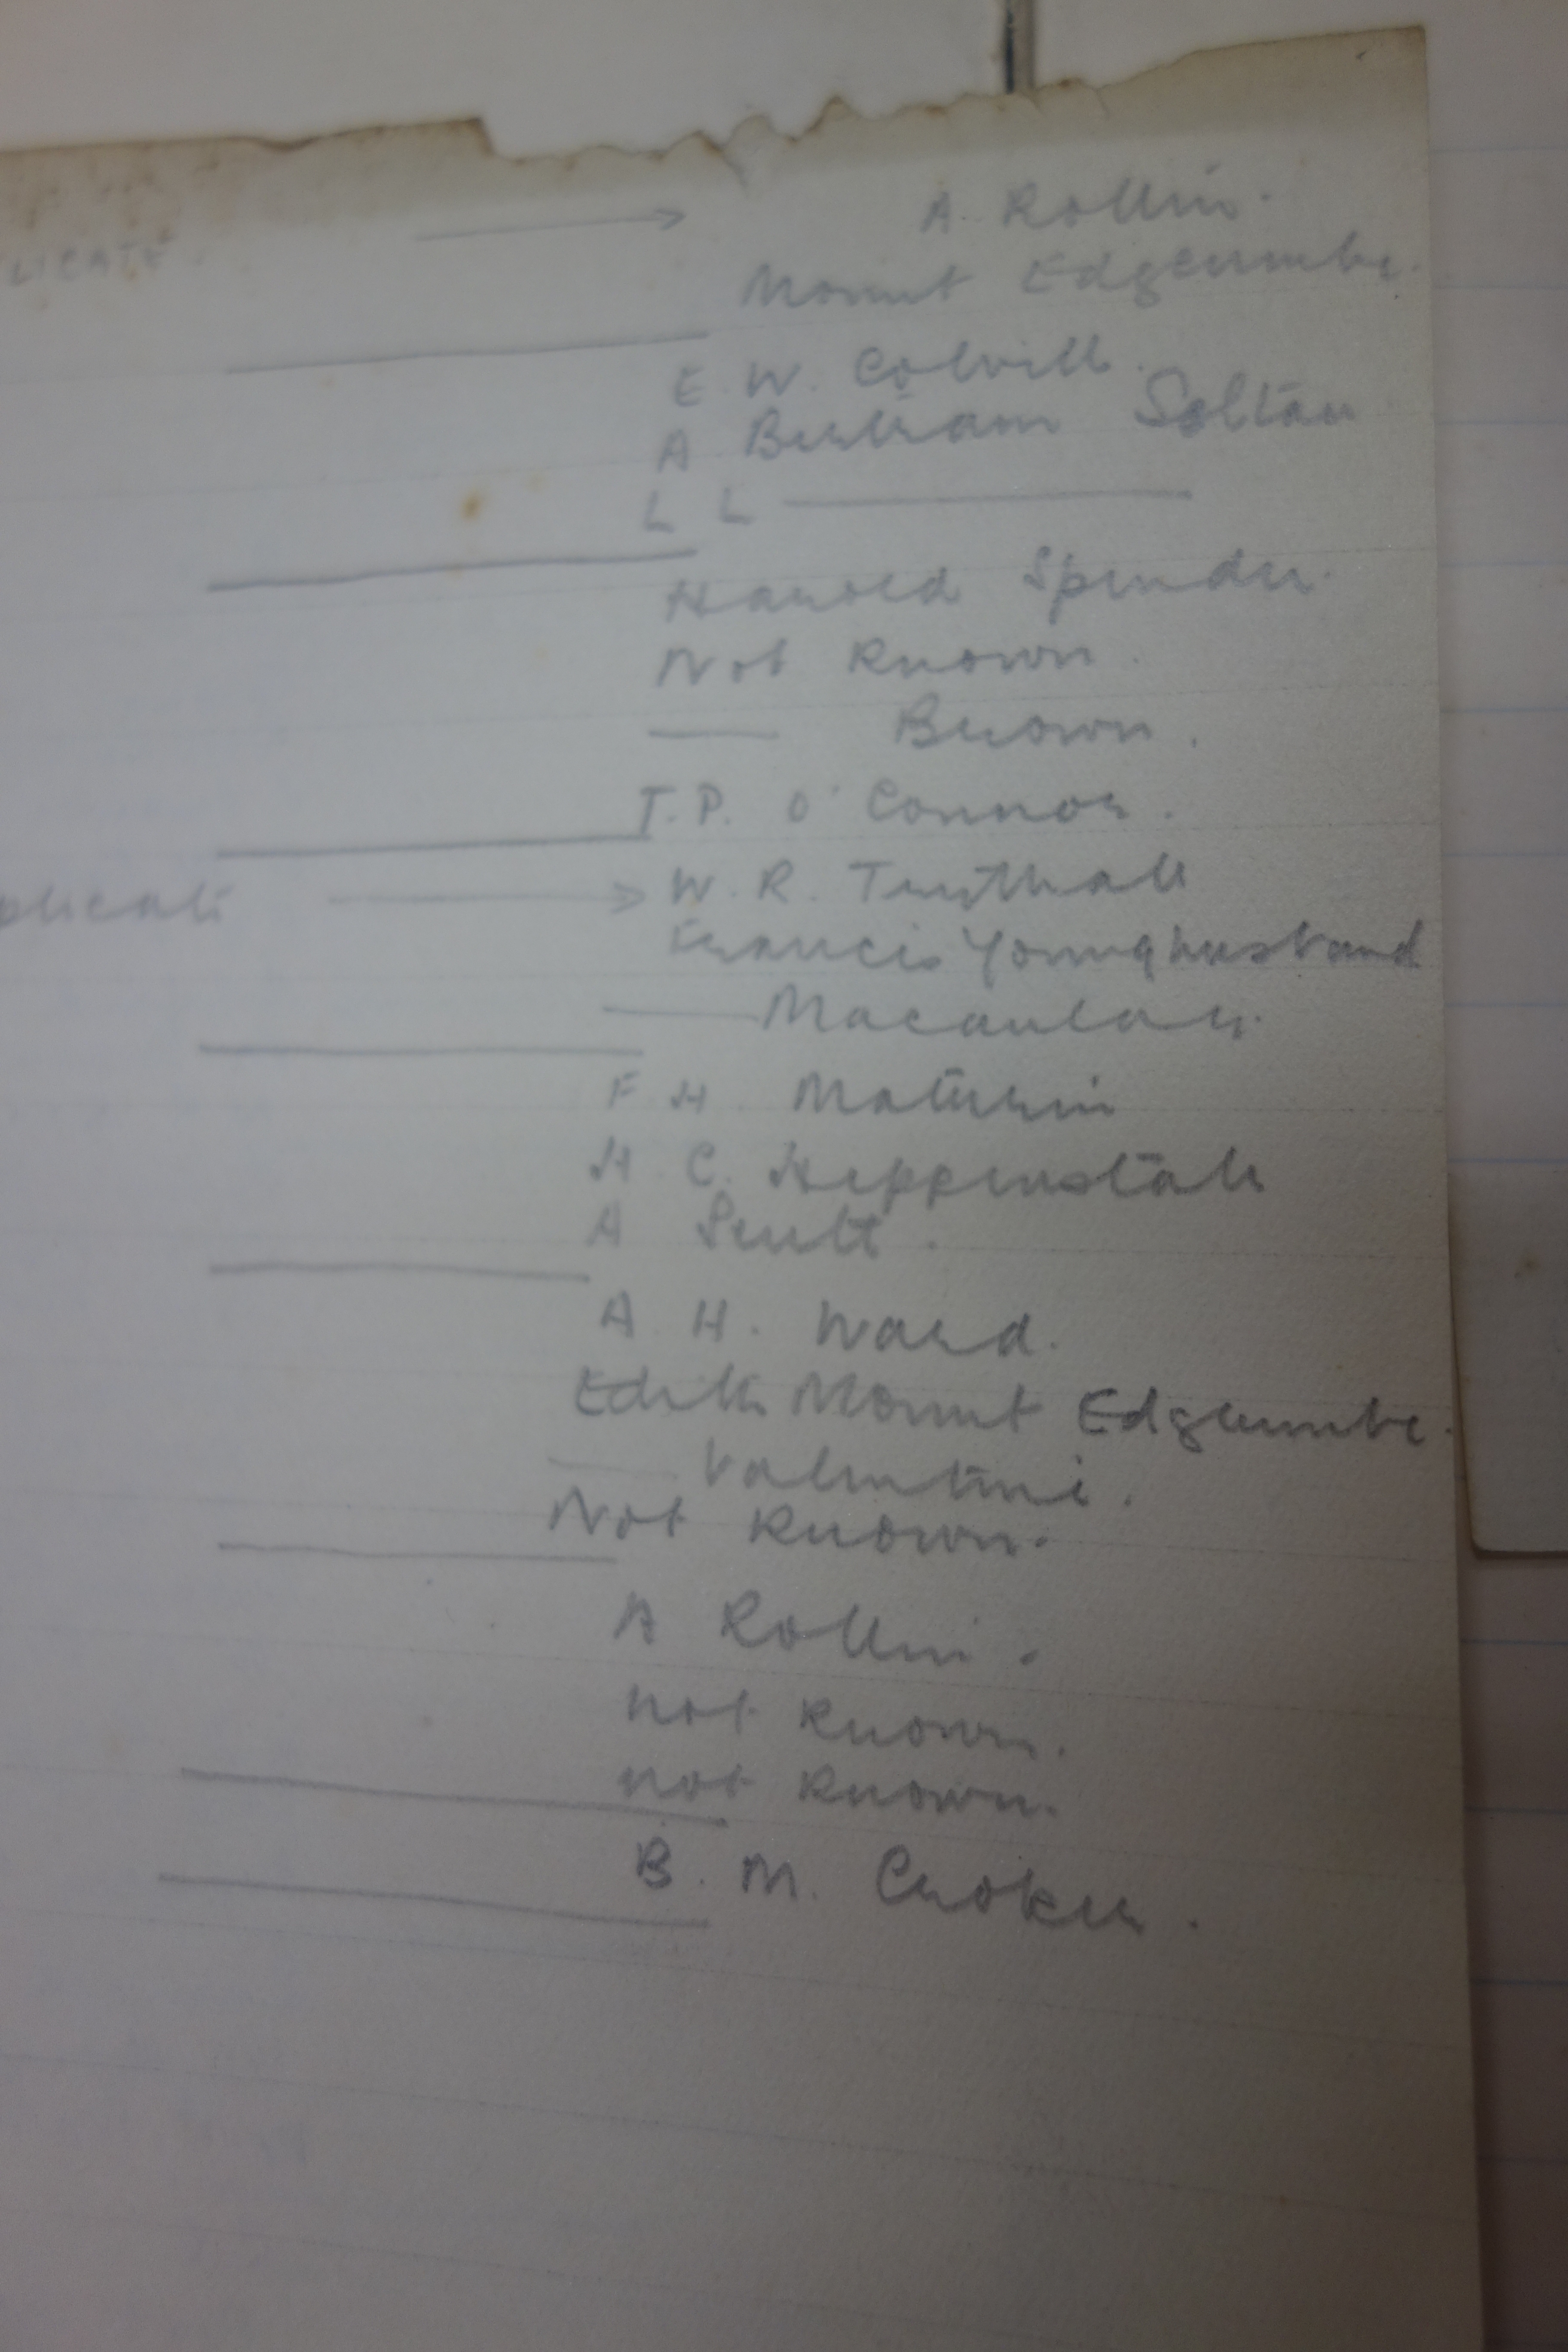 LICATE → A. Rollin.
Mount Edgcumbe.
E. W. Colvill.
A Bertram Soltau
L L
Harold Spender.
Not Known.
Brown.
T. P. O'Connor.
plicate → W. R.
Francis Younghusband
Macaulay.
F H. Maturin
H. C. Heppenstall
A
A H. Ward.
Edith Mount Edgcumbe.
Valentine.
Not Known.
A Rollin.
not Known.
not Known.
B. M. Croker.